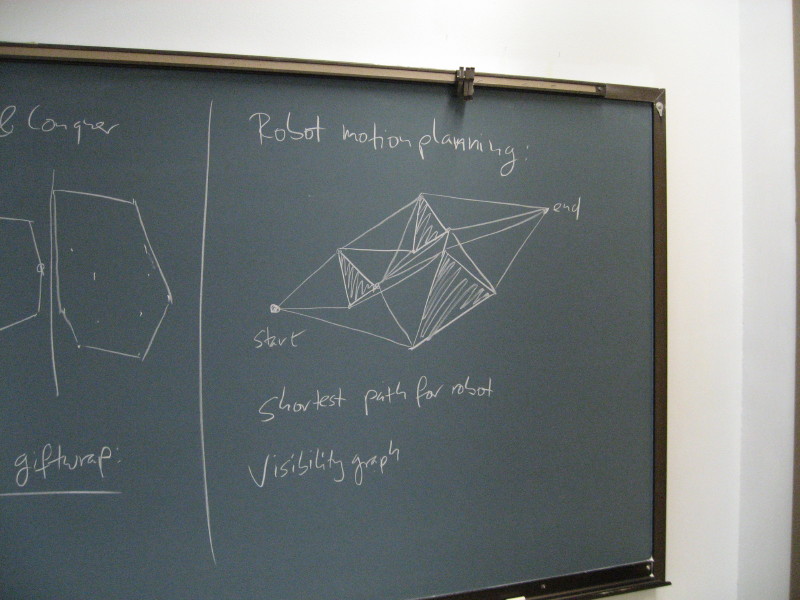 & Conquer
giftwrap:
Robot motion planning:
end
start
Shortest path for robot
Visibility graph